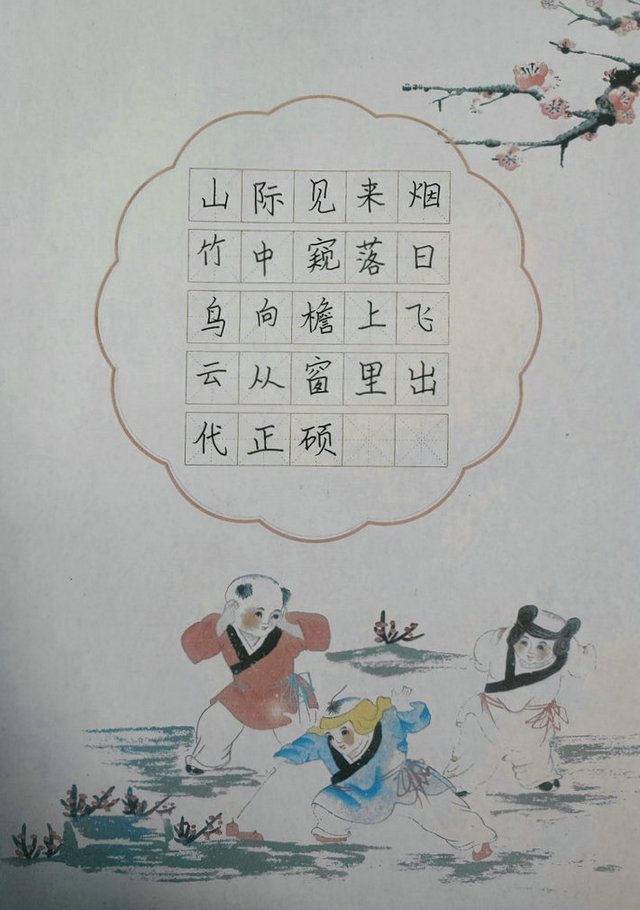 山际见来烟
竹中窥落日
鸟向檐上飞
云从窗里出
代正硕